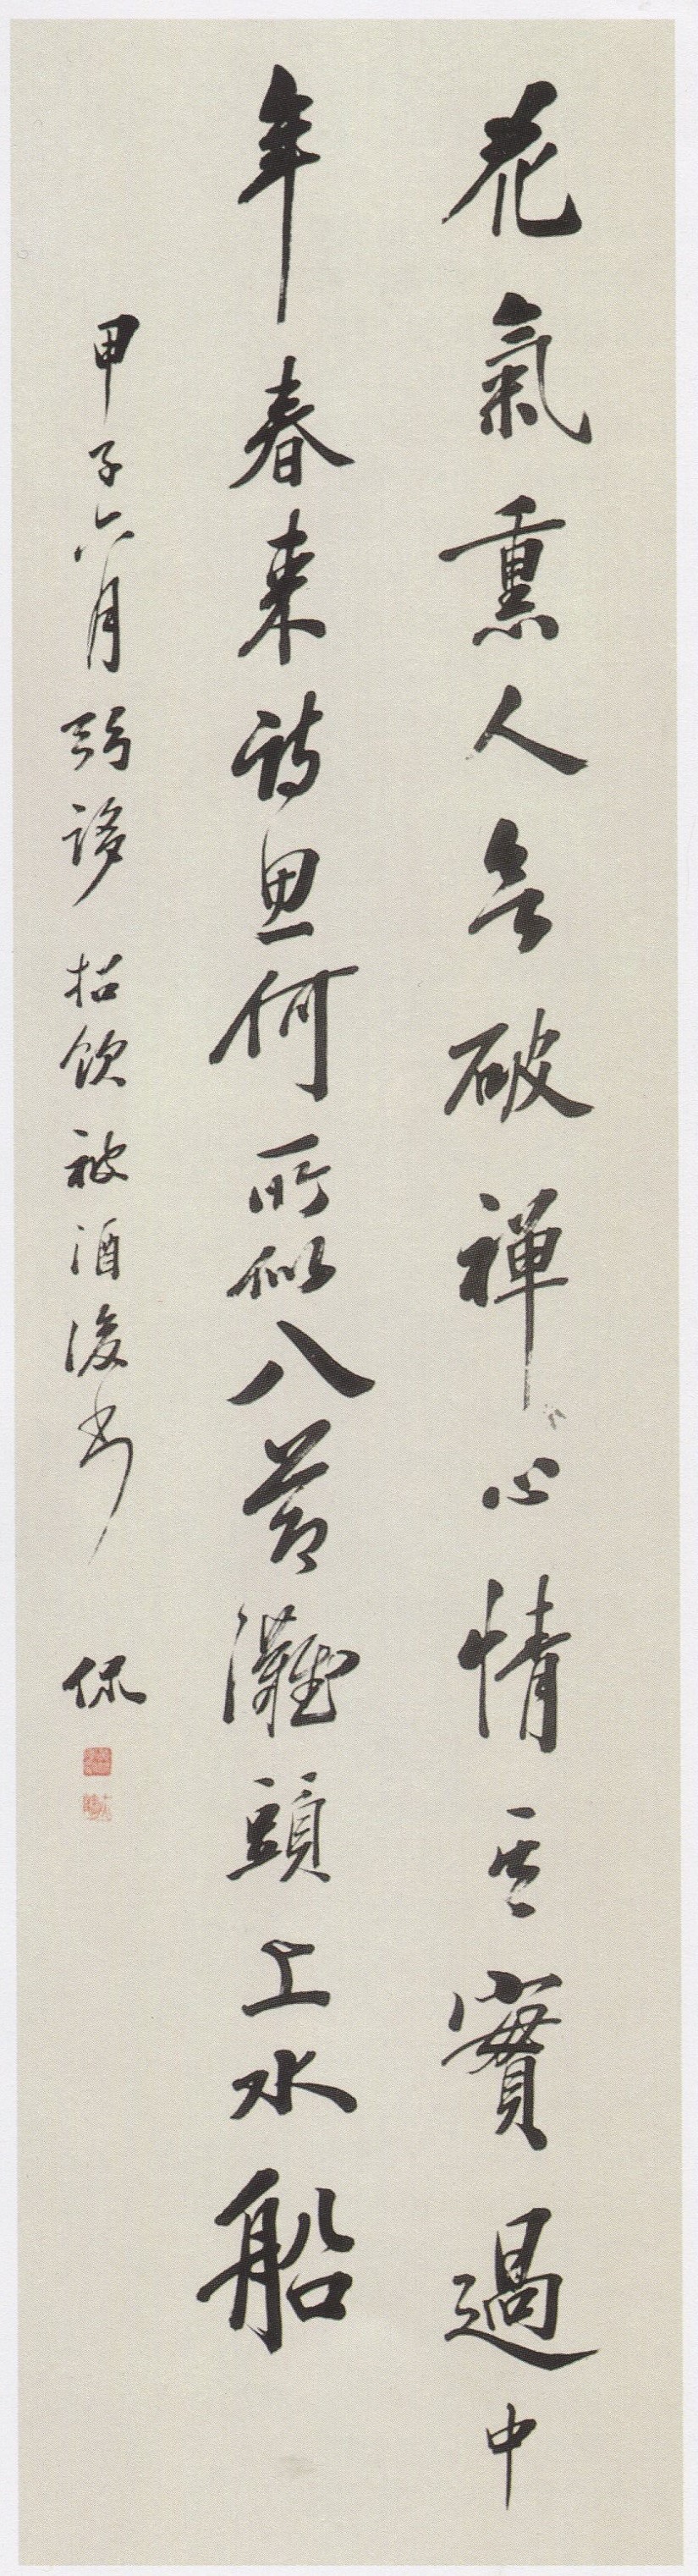 花氣熏人欲破禪心情其實過中
年春來詩思何所似八節灘頭上水船
甲子六月 招飲被酒後書 侃